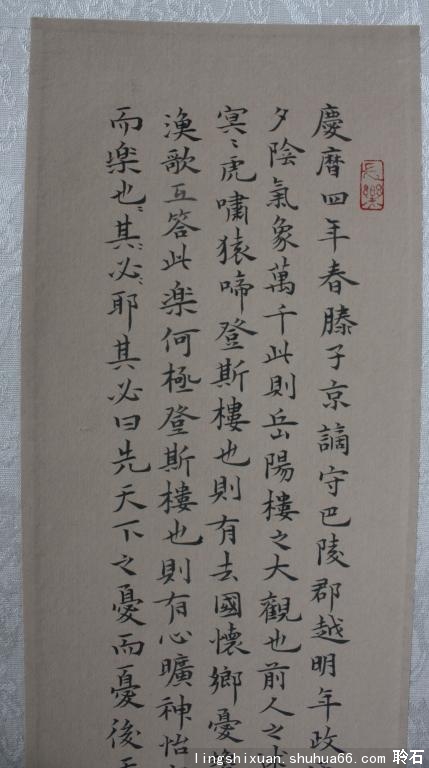 慶曆四年春滕子京謫守巴陵郡越明年政
夕陰氣象萬千此則岳陽樓之大觀也前人之
冥〻虎嘯猿啼登斯樓也則有去國懷鄉憂
漁歌互答此楽何極登斯樓也則有心曠神怡
而楽也〻其〻必〻耶其必曰先天下之憂而憂後
lingshixuan.shuhua66.com 聆石